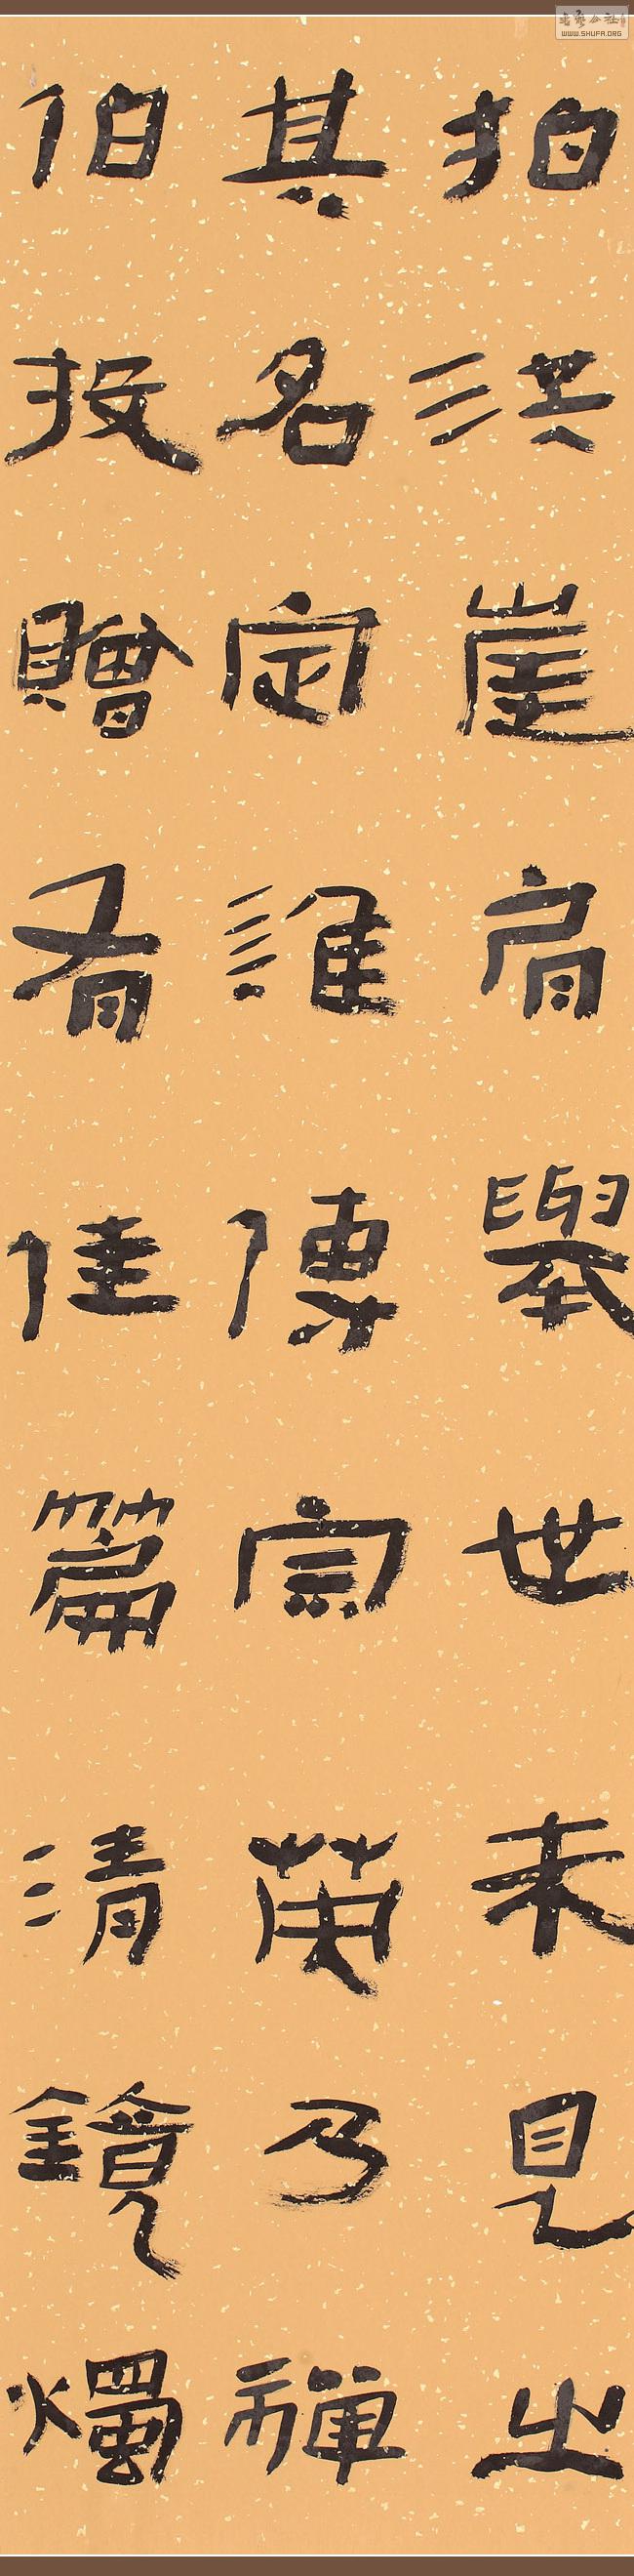 拍洪崖肩舉世未見之
其名定誰傳宗英乃禪
伯投贈有佳篇清鏡燭
书艺公社
WWW.SHUFA.ORG